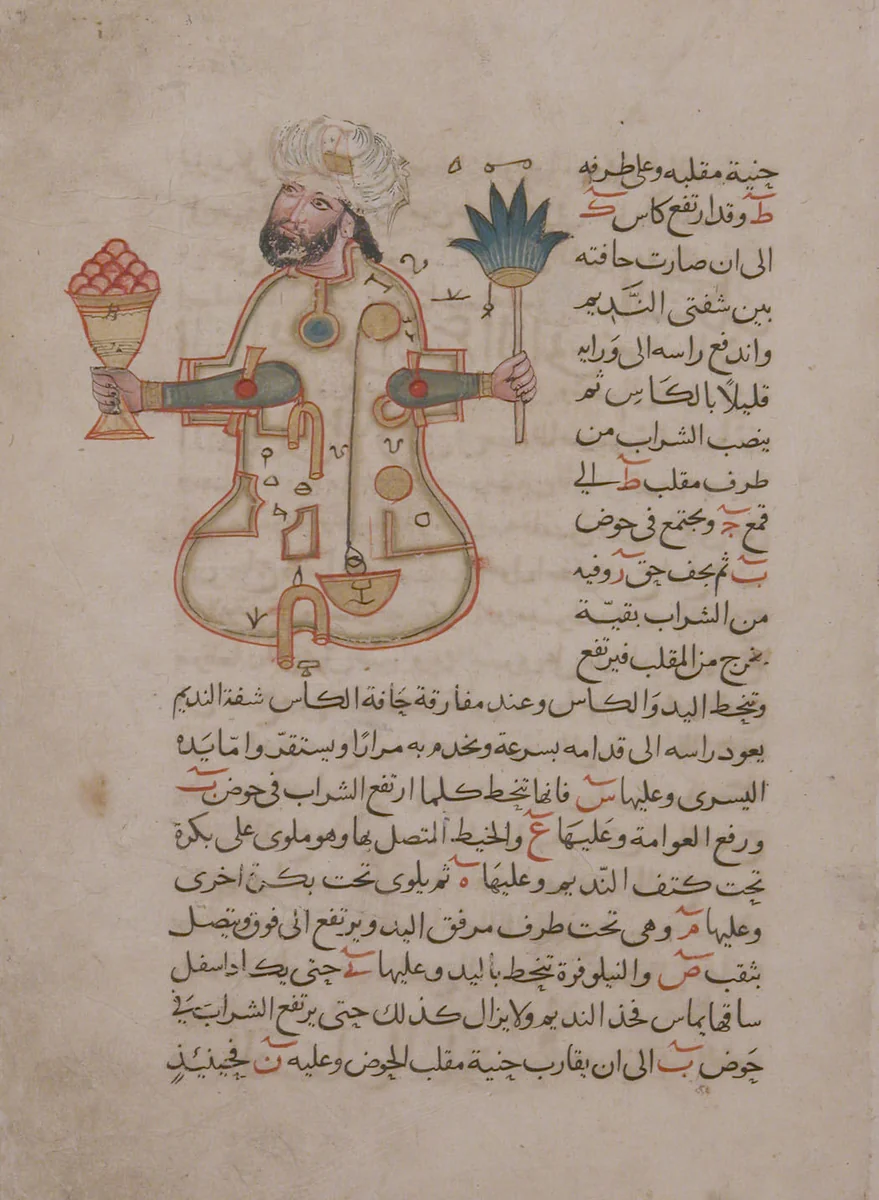 حنية مقلبه وعلى طرفه
ط وقد ارتفع كاس ك
الى ان صارت حافته
بين شفتى النديم
واندفع راسه الى ورايه
قليلًا بالكَاسِ ثم
ينصب الشراب من
طرف مقلب ط الى
قمع ج ويجتمع فى حوض
ب ثم يجف حق ر وفيه
من الشراب بقيّة
يخرج من المقلب فيرتفع
وتنحط اليد وَالكاس وعند مفارقة حَافة الكاس شفة النديم
يعود راسه الى قدامه بسرعة ويخدم به مرارًا ويستقرّ وامّا يَده
اليسرى وعليها س فانها تنحط كلما ارتفع الشراب فى حوض ب
ورفع العوامة وعَليهَا ع والخيط المتصل بها وهو ملوى على بكرة
تحت كتف النّديم وعليهَا ه ثم يلوى تحت بكرة اخرى
وعليها م وهى تحت طرف مرفق اليد ويرتفع الى فوق ويتصل
بثقب ص والنيلوفرة تنحط باليد وعليها حتى يكاد اسفل
ساقها يماس فخذ النديم ولا يزال كذلك حتى يرتفع الشراب فى
حَوض ب الى ان يقارب حنية مقلب الحوض وعليه ن فحينئذٍ